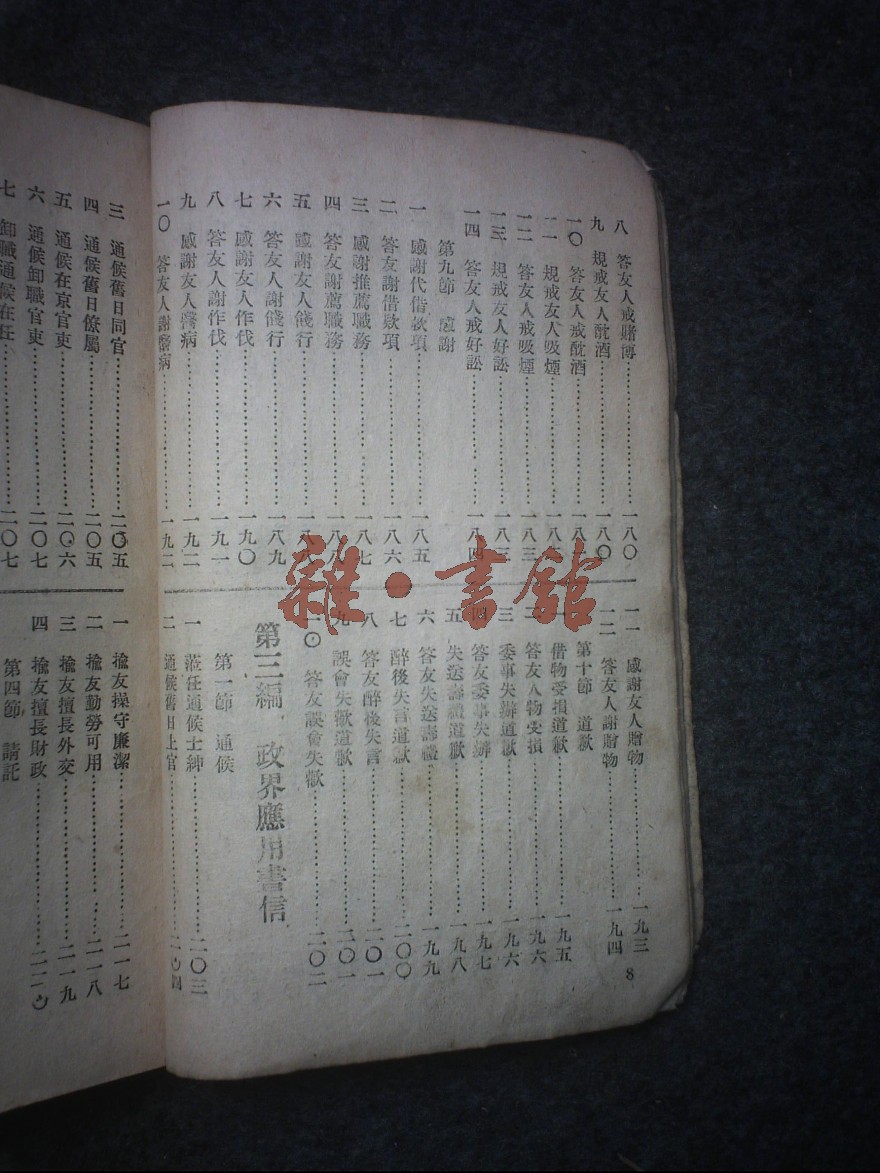 八 答友人戒賭博……一八〇
九 規戒友人酖酒……一八〇
一〇 答友人戒酖酒……一八
一一 規戒友人吸煙……一八
一二 答友人戒吸煙……一八三
一三 規戒友人好訟……一八三
一四 答友人戒好訟……一八四
第九節 感謝
一 感謝代借款項……一八五
二 答友謝借款項……一八六
三 感謝推薦職務……一八七
四 答友謝薦職務……一八八
五 感謝友人餞行……一八
六 答友人謝餞行……一八九
七 感謝友人作伐……一九〇
八 答友人謝作伐……一九一
九 感謝友人醫病……一九二
一〇 答友人謝醫病……一九二
一一 感謝友人贈物……一九三
一二 答友人謝贈物……一九四
第十節 道歉
一 借物受損道歉……一九五
二 答友人物受損……一九六
三 委事失辦道歉……一九六
四 答友委事失辦……一九七
五 失送壽禮道歉……一九八
六 答友失送壽禮……一九九
七 醉後失言道歉……二〇〇
八 答友醉後失言……二〇一
九 誤會失歡道歉……二〇一
一〇 答友誤會失歡……二〇二
第三編 政界應用書信
第一節 通候
一 蒞任通候士紳……二〇三
二 通候舊日上官……二〇四
8
三 通候舊日同官……二〇五
四 通候舊日僚屬……二〇五
五 通候在京官吏……二〇六
六 通候卸職官吏……二〇七
七 卸職通候在任……二〇七
一 揄友操守廉潔……二一七
二 揄友勤勞可用……二一八
三 揄友擅長外交……二一九
四 揄友擅長財政……二二〇
第四節 請託
雜·書館